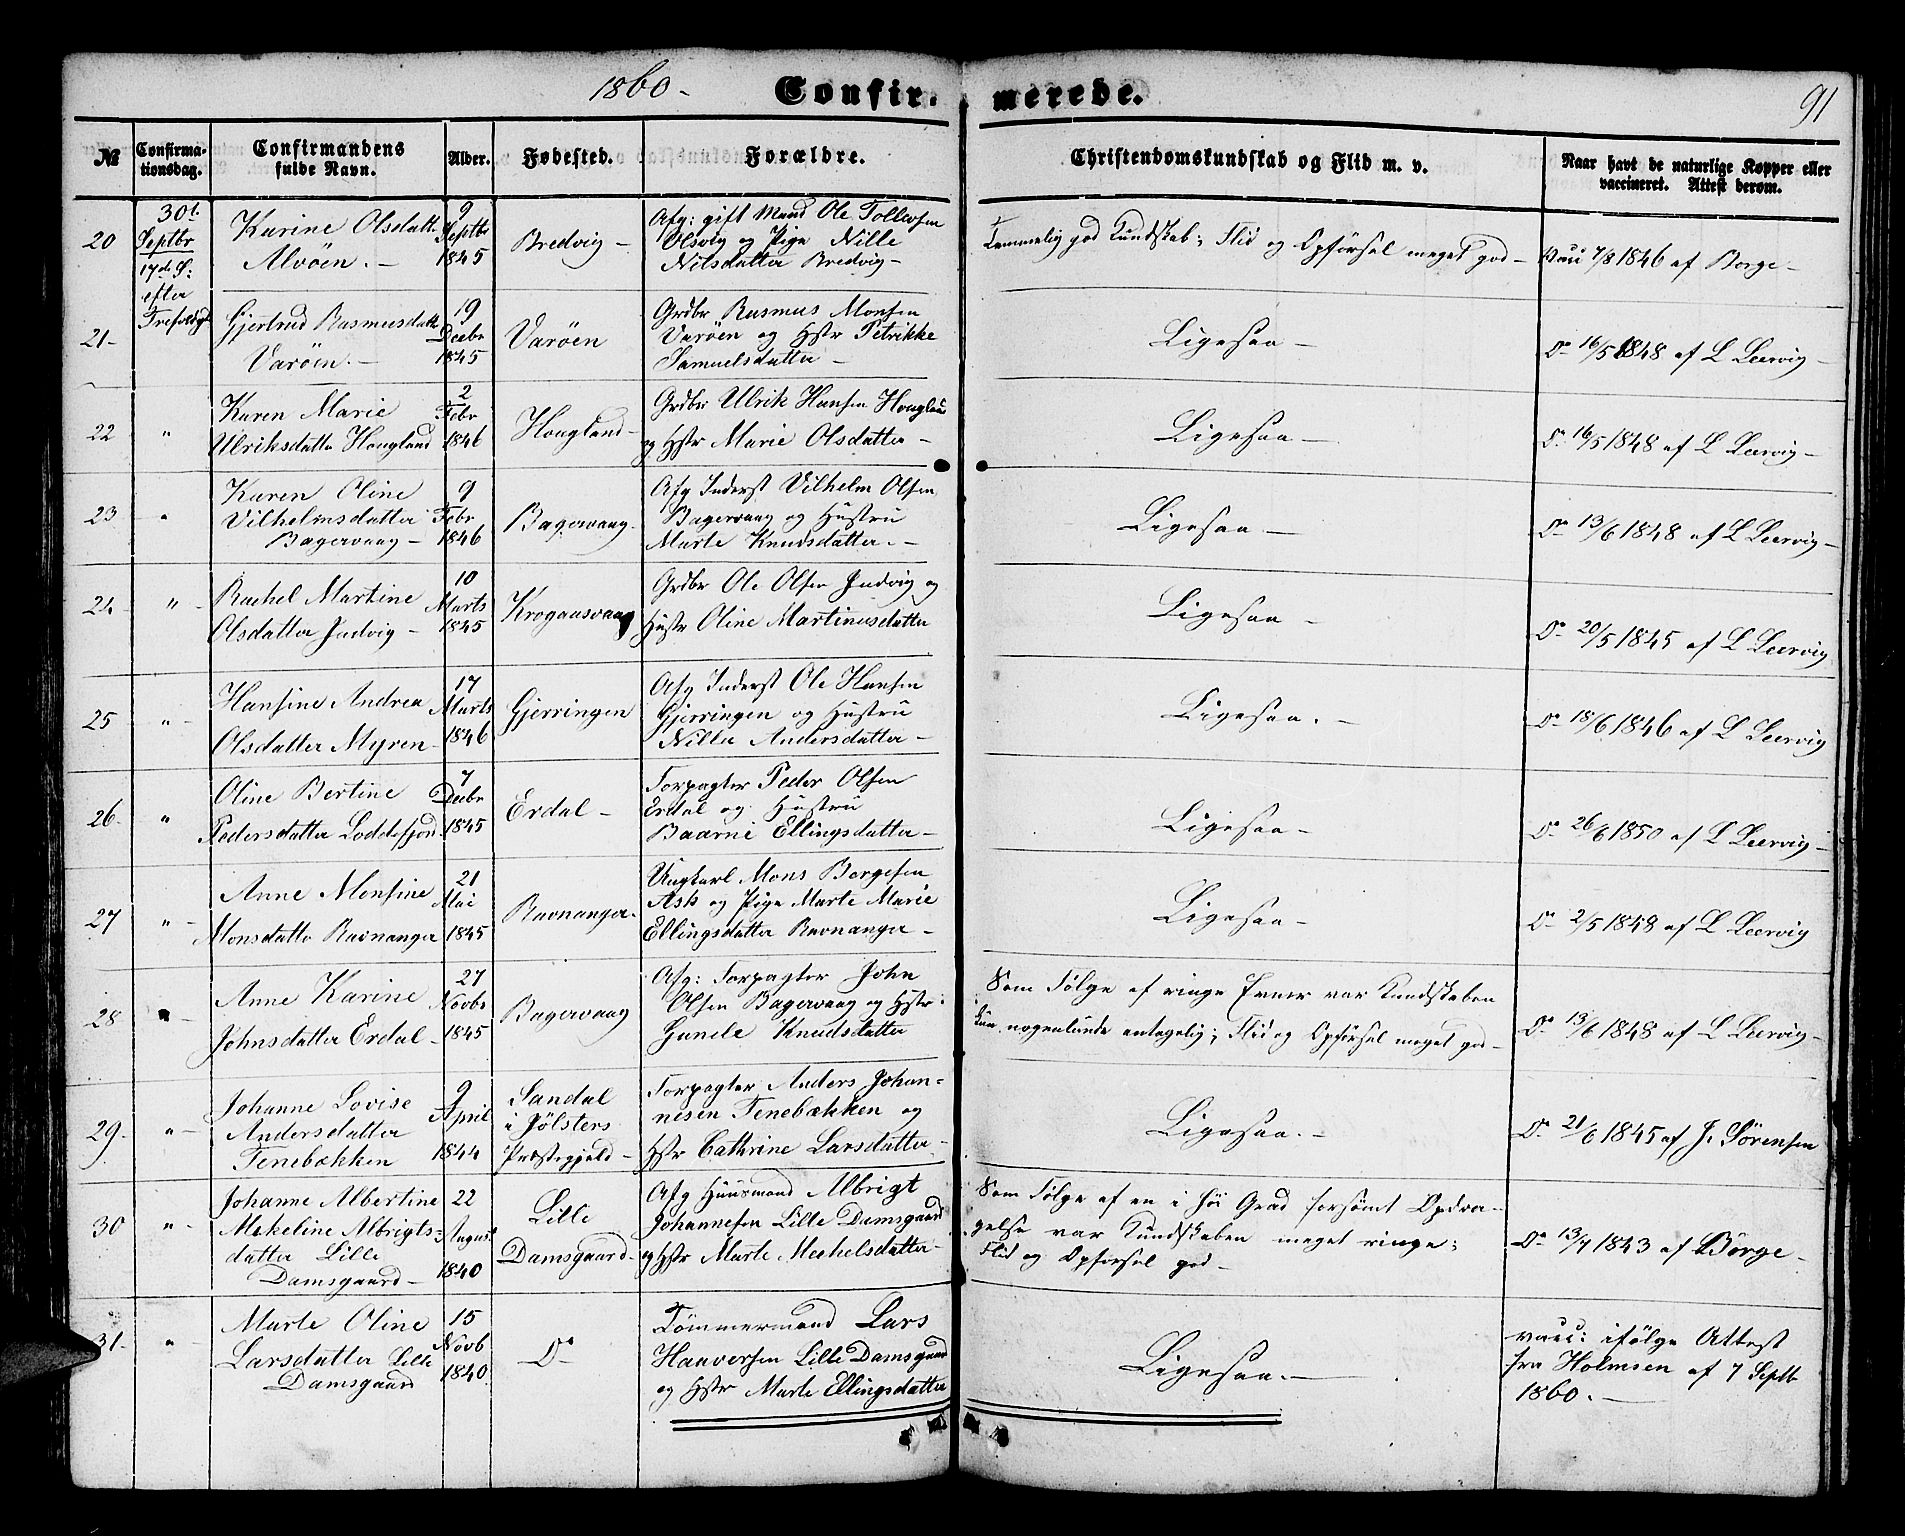 1860 -
Confir- merede.
91
№
Confirma-
tionsdag.
Confirmandens
fulde Navn.
Alder.
Fødested.
Forældre.
Christendomskundskab og Flid m. v.
Naar havt de naturlige Kopper eller
vaccineret. Attest derom.
20
30t
Septbr
17de S:
efter
Trefoldigh
Karine Olsdattr
Alvöen. -
9
Septbr
1845
Bredvig -
Afg: gift Mand Ole Tollevsen
Olsvig og Pige Nille
Nilsdatter Bredvig -
Temmelig god Kundskab; Flid og Opförsel meget god -
Vacc 7/8 1846 af Borge -
21 -
Gjertrud Rasmusdattr
Varöen. -
19
Decbr
1845
Varöen
Grdbr Rasmus Monsen
Varöen og Hstr Petrikke
Samuelsdatter -
Ligesaa -
Do 16/5 1848 af L Leervig -
22
"
Karen Marie
Ulriksdatter Hougland
2
Febr
1846
Hougland -
Grdbr Ulrik Hansen Houglan
og Hstr Marie Olsdatter -
Ligesaa -
Do 16/5 1848 af L Leervig -
23
"
Karen Oline
Vilhelmsdatter
Bagervaag -
9
Febr
1846
Bagervaag -
Afg Inderst Vilhelm Olsen
Bagervaag og Hustru
Marte Knudsdatter. -
Ligesaa -
Do 13/6 1848 af L Leervig -
24 -
" -
Rachel Martine
Olsdatter Judvig -
10
Marts
1845
Krogaasvaag
Grdbr Ole Olsen Judvig og
Hustr Oline Martinusdatter
Ligesaa -
Do 20/5 1845 af L Leervig
25
" -
Hansine Andrea
Olsdatter Myren -
17
Marts
1846
Gjerringen
Afg Inderst Ole Hansen
Gjerringen og Hustru
Nille Andersdatter -
Ligesaa. -
Do 18/6 1846 af L Leervig
26 -
"
Oline Bertine
Pedersdatter Loddefjord
7
Decbr
1845
Erdal -
Forpagter Peder Olsen
Erdal og Hustru
Baarni Ellingsdatter -
Ligesaa -
Do 26/6 1850 af L Leervig -
27
" -
Anne Monsine
Monsdatter Ravnanger
21
Mai
1845
Ravnanger -
Ungkarl Mons Borgesen
Ask og Pige Marte Marie
Ellingsdatter Ravnanger -
Ligesaa -
Do 2/5 1848 af L Leervig
28
" -
Anne Karine
Johnsdatter Erdal -
27
Novbr
1845
Bagervaag
Afg: Forpagter John
Olsen Bagervaag og Hstr
Gunele Knudsdatter
Som Fölge af ringe Evner var Kundskaben
kun nogenlunde antagelig; Flid og Opförsel meget god -
Do 13/6 1848 af L Leervig -
29 -
" -
Johanne Lovise
Andersdatter
Tenebækken
9
April
1844
Sandal
i Jölsters
Præstegjeld -
Forpagter Anders Johan-
nesen Tenebækken og
Hstr Cathrine Larsdatter -
Ligesaa. -
Do 21/6 1845 af J. Sörensen
30
" -
Johanne Albertine
Mekeline Albrigts-
datter Lille
Damsgaard -
22
August
1840
Lille
Damsgaard -
Afg Huusmand Albrigt
Johannesen Lille Damsgaard
og Hstr Marte Mechelsdatter -
Som Fölge af en i höi Grad forsömt Opdra-
gelse var Kundskaben meget ringe;
Flid og Opförsel god -
Do 13/7 1843 af Börge -
31.
" -
Marte Oline
Larsdatter Lille
Damsgaard
15
Novb
1840
Do
Tömmermand Lars
Haaversen Lille Damsgaard
og Hstr Marte Ellingsdatter
Ligesaa. -
vacc: ifölge Attest
fra Holmsen af 7 Septb
1860. -